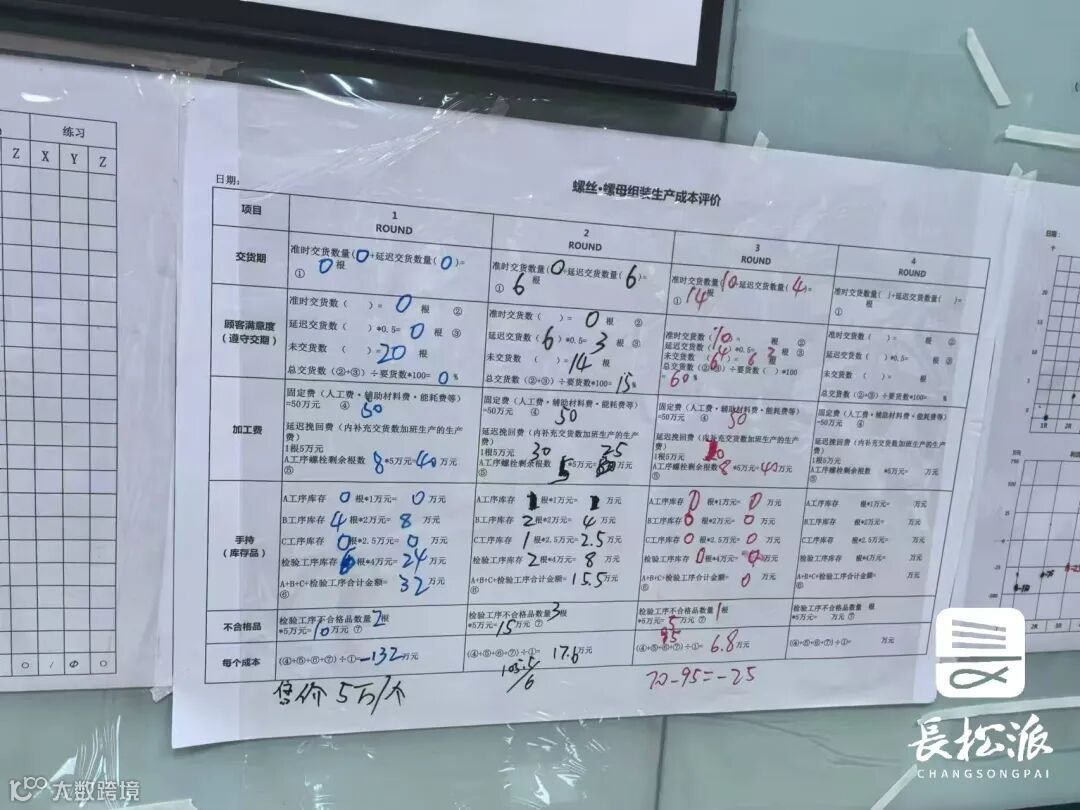 练习
Z X Y Z
日期:
螺丝·螺母组装生产成本评价
项目
1
ROUND
2
ROUND
3
ROUND
4
ROUND
交货期
准时交货数量(0+延迟交货数量(0)=
① 0根
准时交货数量(0+延迟交货数量(6)=
① 6 根
准时交货数量(10+延迟交货数量(4)=
① 14根
准时交货数量( )+延迟交货数量( )=
① 根
顾客满意度
(遵守交期)
准时交货数( )= 0 根 ②
延迟交货数( )*0.5= 0 根 ③
未交货数 ( )= 20 根
总交货数(②+③)÷要货数*100= 0 %
准时交货数( )= 0 根 ②
延迟交货数(6)*0.5= 3 根 ③
未交货数 ( )= 14 根
总交货数(②+③)÷要货数*100= 15 %
准时交货数(10 = 根 ②
延迟交货数( )*0.5= 根 ③
未交货数
总交货数(②+③)÷要货数( )*100
= 60 %
准时交货数( )= 根 ②
延迟交货数( )*0.5= 根 ③
未交货数( )= 根
总交货数(②+③)÷要货数*100= %
加工费
固定费(人工费·辅助材料费·能耗费等)
=50万元 ④ 50
延迟挽回费(内补充交货数加班生产的生产费)
1根5万元
A工序螺栓剩余根数 8*5万元=40万元
⑤
固定费(人工费·辅助材料费·能耗费等)
=50万元 ④ 50
延迟挽回费(内补充交货数加班生产的生产费)
1根5万元 30 25
A工序螺栓剩余根数 5*5万元= 万元
⑤
固定费(人工费·辅助材料费·能耗费等)
=50万元 ④ 50
延迟挽回费(内补充交货数加班生产的生产费)
1根5万元
A工序螺栓剩余根数 8*5万元=40万元
⑤
固定费(人工费·辅助材料费·能耗费等)
=50万元 ④
延迟挽回费(内补充交货数加班生产的生产费)
1根5万元
A工序螺栓剩余根数 *5万元= 万元
⑤
手持
(库存品)
A工序库存 0 根*1万元= 0 万元
B工序库存 4 根*2万元= 8 万元
C工序库存 0根*2.5万元= 0 万元
检验工序库存 6根*4万元= 24 万元
A+B+C+检验工序合计金额= 32 万元
⑥
A工序库存 1根*1万元= 1 万元
B工序库存 2 根*2万元= 4 万元
C工序库存 1 根*2.5万元= 2.5 万元
检验工序库存 2 根*4万元= 8 万元
A+B+C+检验工序合计金额= 15.5万元
⑥
A工序库存 0 根*1万元= 0 万元
B工序库存 0 根*2万元= 0 万元
C工序库存 0 根*2.5万元= 0 万元
检验工序库存 0根*4万元= 0 万元
A+B+C+检验工序合计金额= 0 万元
⑥
A工序库存 根*1万元= 万元
B工序库存 根*2万元= 万元
C工序库存 根*2.5万元= 万元
检验工序库存 根*4万元= 万元
A+B+C+检验工序合计金额= 万元
⑥
不合格品
检验工序不合格品数量 2根
*5万元=10万元 ⑦
检验工序不合格品数量 3根
*5万元=15万元 ⑦
检验工序不合格品数量 1根
*5万元=5万元 ⑦
检验工序不合格品数量 根
*5万元= 万元 ⑦
每个成本
(④+⑤+⑥+⑦)÷①=-132万元
(④+⑤+⑥+⑦)÷①= 17.6万元
105.5/6
95
(④+⑤+⑥+⑦)÷①= 6.8万元
(④+⑤+⑥+⑦)÷①= 万元
售价 5万/个
70-95=-25
日期:
長松派
CHANGSONGPAI
大数跨境